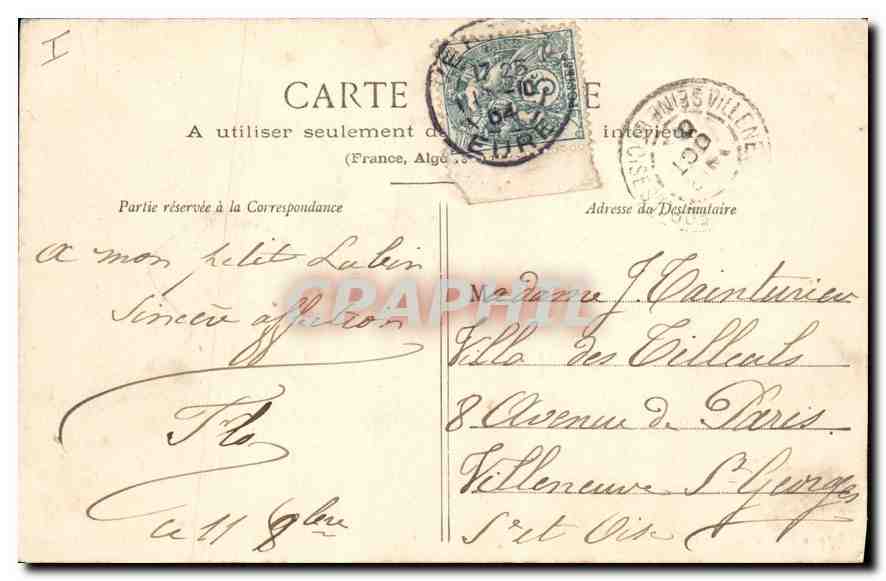 I
CARTE E
A utiliser seulement d intérieur
(France, Algé
17 25
-10
04
EURE
POSTES
VILLENEUVE
SEINE
OISE
OCT
Partie réservée à la Correspondance
Adresse du Destinataire
A mon petit Lubin
Sincère affection
Flo
Ce 11 8bre
CPAPHIL
Madame J. Tainturier
Villa des Tilleuls
8 Avenue de Paris
Villeneuve St Georges
S. et Oise